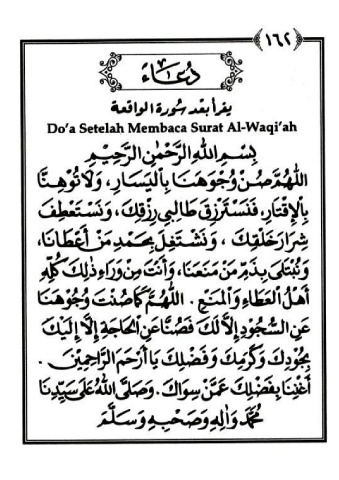 ﴿١٦٢﴾
دُعَاءٌ
يقرأ بعد سُورة الواقعة
Do'a Setelah Membaca Surat Al-Waqi'ah
بِسْمِ اللهِ الرَّحْمٰنِ الرَّحِيْمِ
اَللّٰهُمَّ صُنْ وُجُوْهَنَا بِالْيَسَارِ، وَلَا تُوْهِنَّا
بِالْاِقْتَارِ، فَنَسْتَرْزِقَ طَالِبِي رِزْقِكَ، وَنَسْتَعْطِفَ
شِرَارَ خَلْقِكَ، وَنَشْتَغِلَ بِحَمْدِ مَنْ أَعْطَانَا،
وَنُبْتَلَى بِذَمِّ مَنْ مَنَعَنَا، وَأَنْتَ مِنْ وَرَاءِ ذٰلِكَ كُلِّهِ
أَهْلُ الْعَطَاءِ وَالْمَنْعِ. اَللّٰهُمَّ كَمَا صُنْتَ وُجُوْهَنَا
عَنِ السُّجُوْدِ إِلَّا لَكَ فَصُنَّا عَنِ الْحَاجَةِ إِلَّا إِلَيْكَ
بِجُوْدِكَ وَكَرَمِكَ وَفَضْلِكَ يَا أَرْحَمَ الرَّاحِمِيْنَ.
أَغْنِنَا بِفَضْلِكَ عَمَّنْ سِوَاكَ. وَصَلَّى اللهُ عَلَى سَيِّدِنَا
مُحَمَّدٍ وَاٰلِهِ وَصَحْبِهِ وَسَلَّمَ